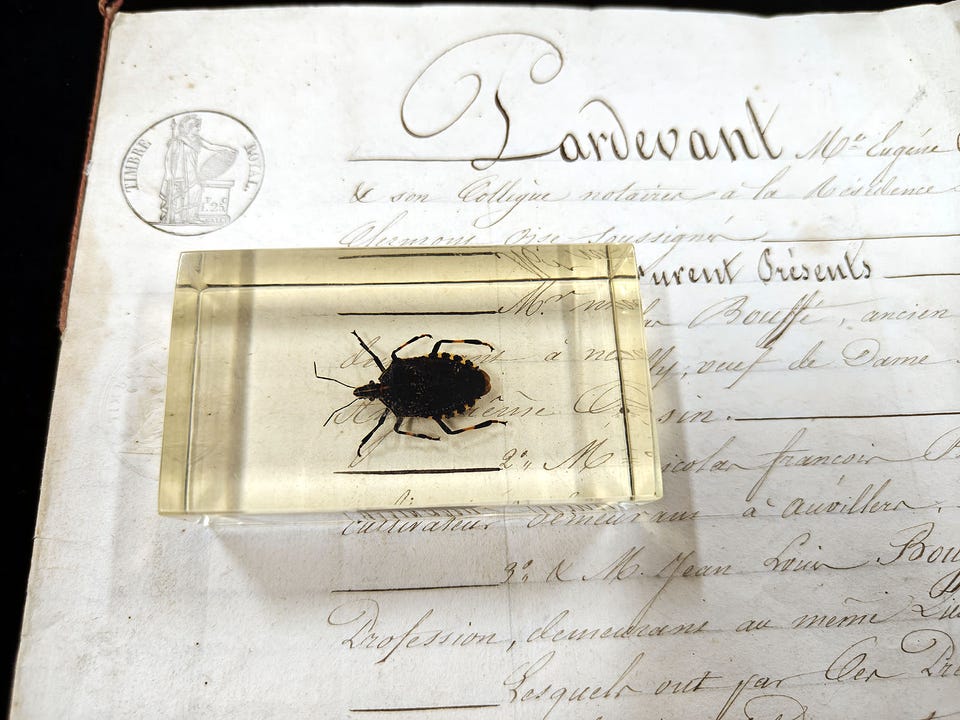 TIMBRE ROYAL
1F. 25C
Pardevant Me Eugène
& son Collègue notaires à la Résidence
Clermont oise soussigné
Furent Présents
Mr Bouffé, ancien
à veuf de Dame
même
2° M. Nicolas francois
cultivateur demeurant à Auvillers
3° & M. Jean Louis Bou
Profession, demeurant au même Lieu
Lesquels ont par Ces Pré